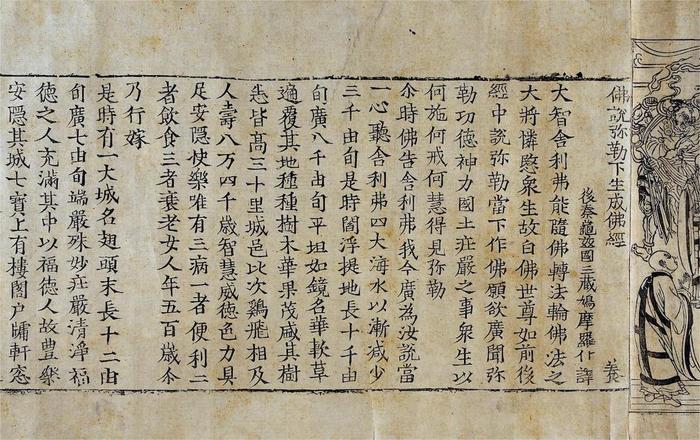 佛說弥勒下生成佛經 養
後秦龜兹國三藏鳩摩羅什譯
大智舍利弗能隨佛轉法輪佛法之
大將憐愍衆生故白佛世尊如前後
經中說弥勒當下作佛願欲廣聞弥
勒功德神力國土莊嚴之事衆生以
何施何戒何慧得見弥勒
尒時佛告舍利弗我今廣為汝說當
一心聽舍利弗四大海水以漸減少
三千由旬是時閻浮提地長十千由
旬廣八千由旬平坦如鏡名華軟草
遍覆其地種種樹木華果茂盛其樹
悉皆高三十里城邑比次鷄飛相及
人壽八万四千歲智慧威德色力具
足安隱快樂唯有三病一者便利二
者飲食三者衰老女人年五百歲尒
乃行嫁
是時有一大城名翅頭末長十二由
旬廣七由旬端嚴殊妙莊嚴清淨福
德之人充滿其中以福德人故豊樂
安隱其城七寶上有樓閣户牖軒窓